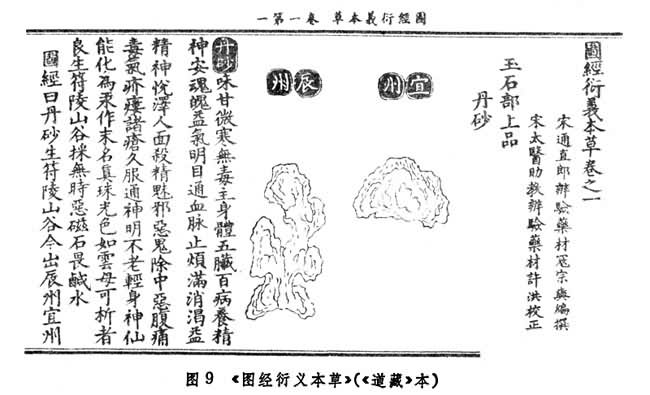 圖經衍義本草 卷一第一
圖經衍義本草卷之一
宋通直郎辨驗藥材寇宗奭編撰
宋太醫助教辨驗藥材許洪校正
玉石部上品
丹砂
宜州
辰州
丹砂味甘微寒無毒主身體五臟百病養精
神安魂魄益氣明目通血脉止煩滿消渴益
精神悅澤人面殺精魅邪惡鬼除中惡腹痛
毒氣疥瘻諸瘡久服通神明不老輕身神仙
能化為汞作末名真珠光色如雲母可析者
良生符陵山谷採無時惡磁石畏鹹水
圖經曰丹砂生符陵山谷今出辰州宜州
图9 《图经衍义本草》(《道藏》本)